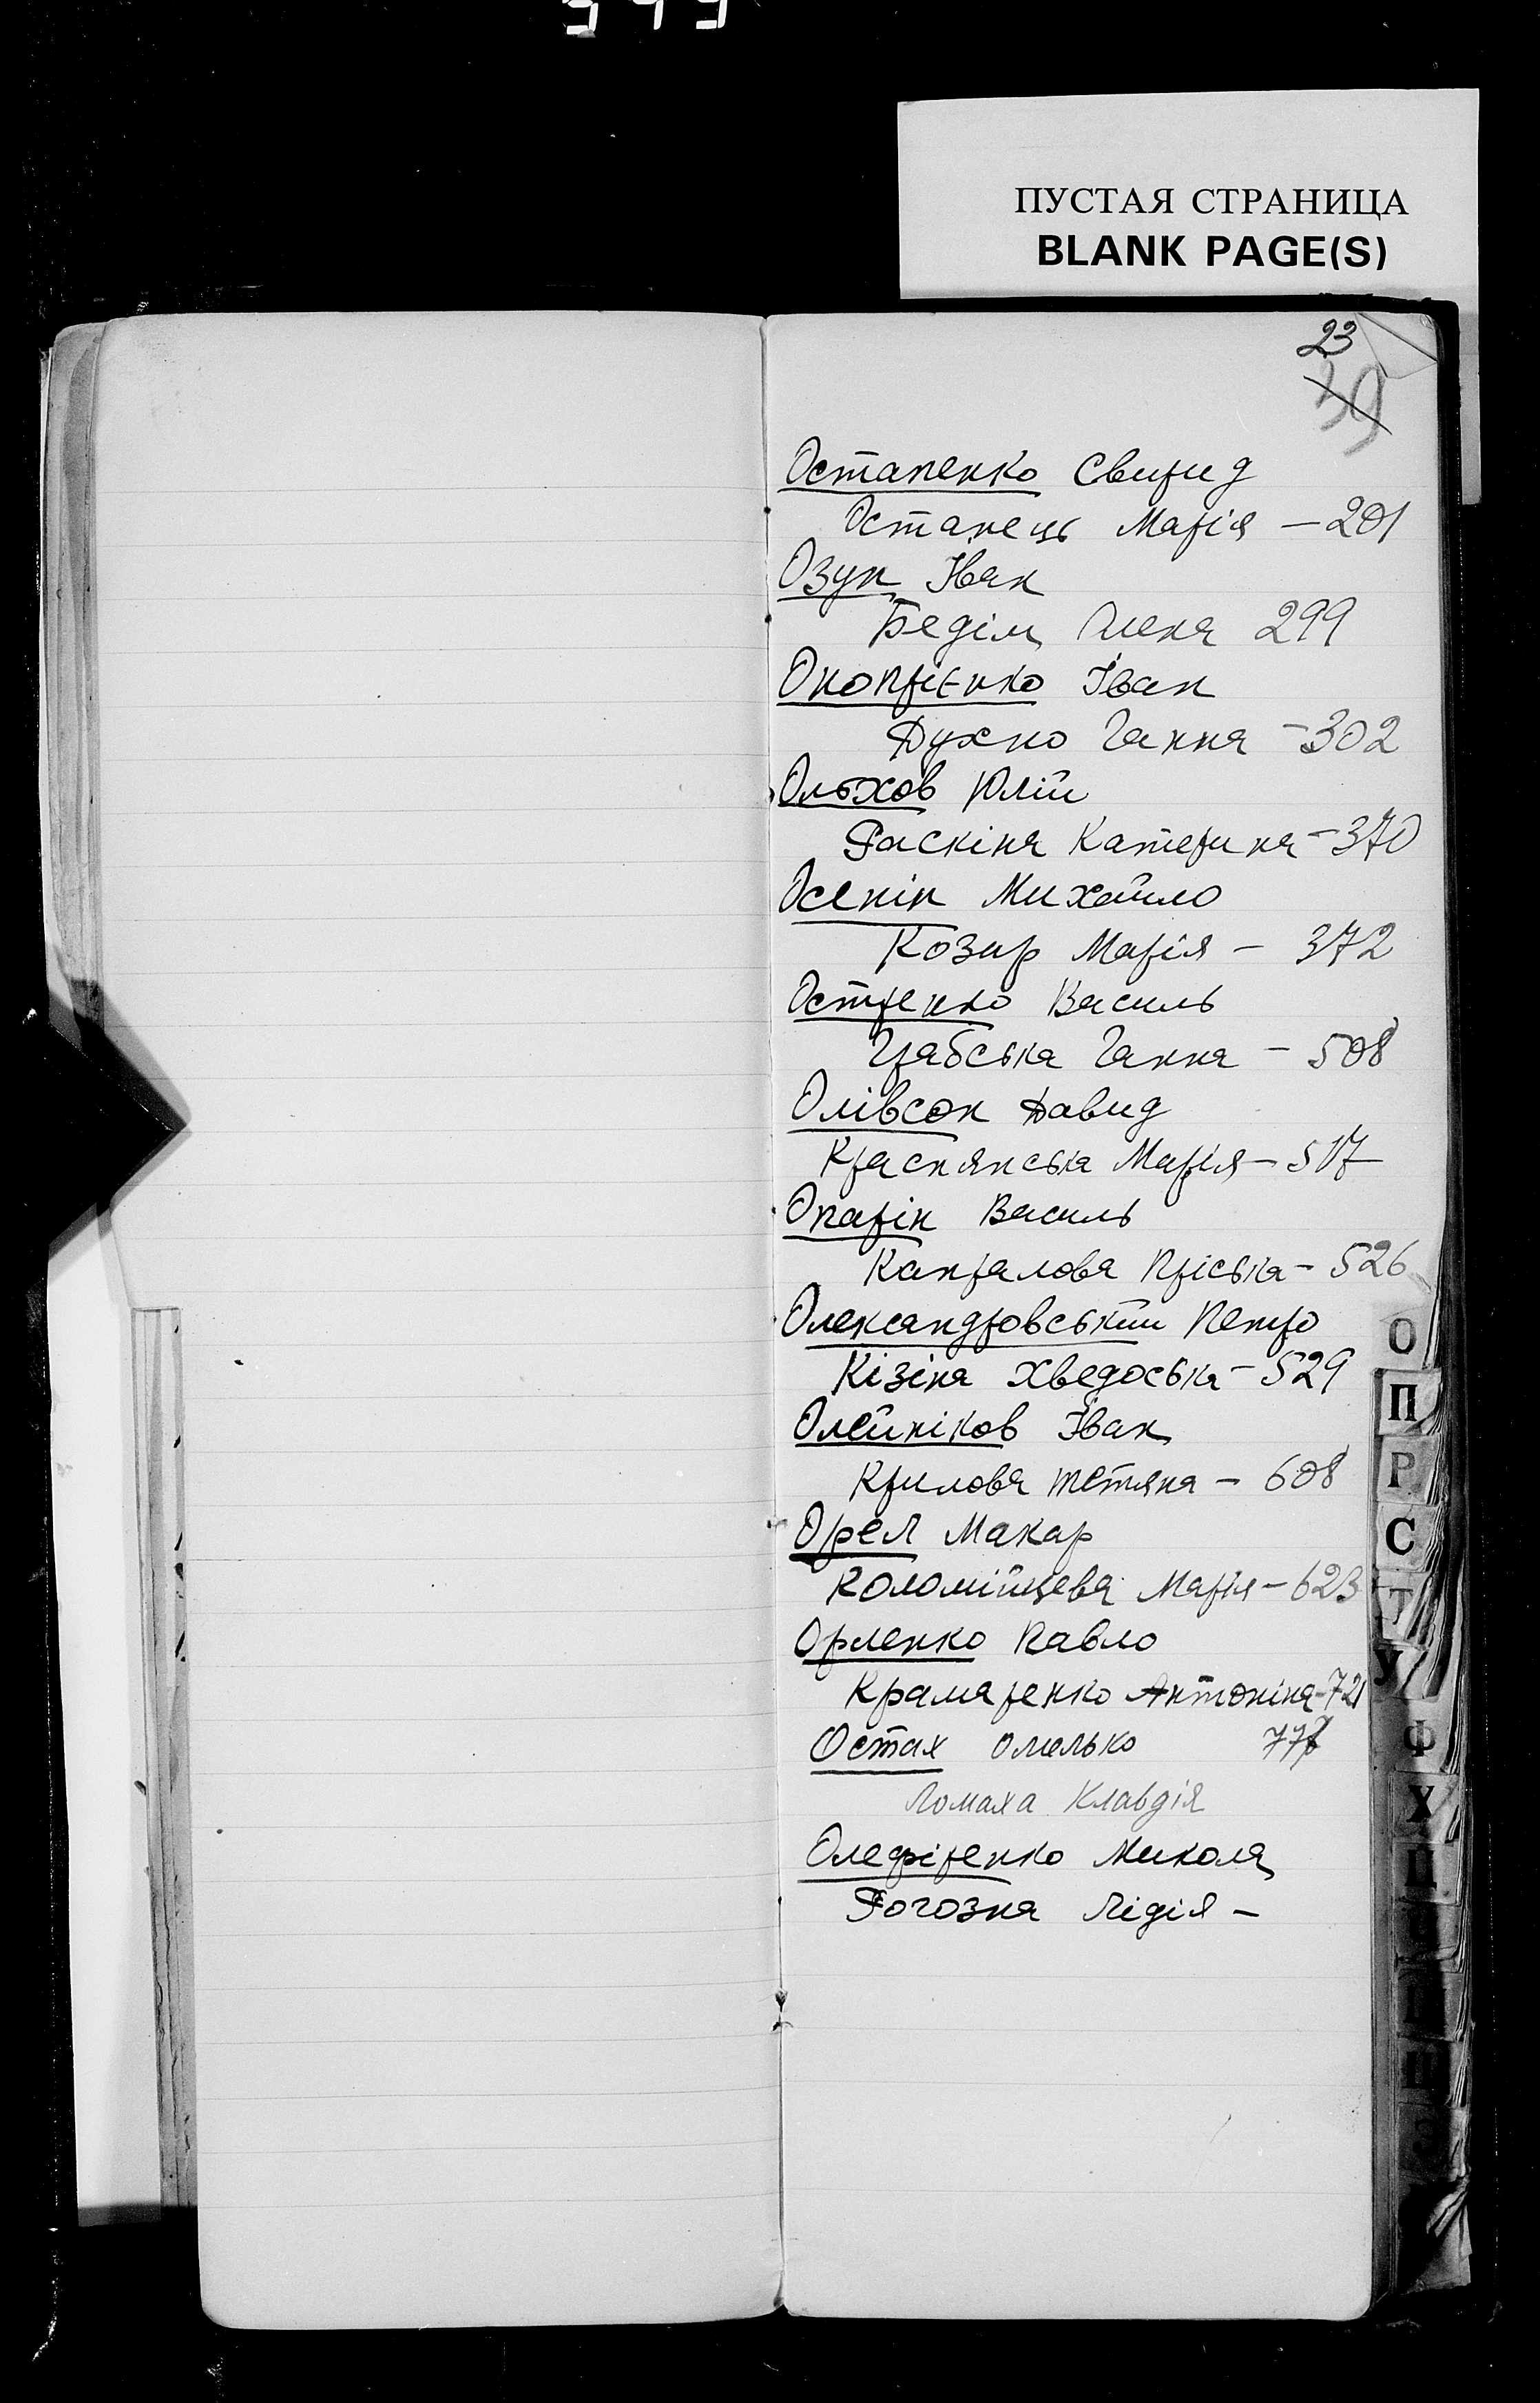 ПУСТАЯ СТРАНИЦА
BLANK PAGE(S)
23
39
Остапенко Свирид
Останець Марія — 201
Озун Іван
Бедім Олена 299
Онопрієнко Іван
Духно Ганна - 302
Ольхов Юлій
Раскіна Катерина - 370
Осенін Михайло
Козир Марія - 372
Остренко Василь
Грабська Ганна - 508
Олівсон Давид
Краснянська Марія - 517
Опарін Василь
Капралова Пріська - 526
Олександровський Петро
Кізіна Хведоська - 529
Олейніков Іван
Крилова Тетяна - 608
Орел Макар
Коломійцева Марія - 623
Орленко Павло
Крамаренко Антоніна - 721
Остах Омелько 777
Ломаха Клавдія
Олефіренко Микола
Рогозна Лідія -
О
П
Р
С
Т
У
Ф
Х
Ц